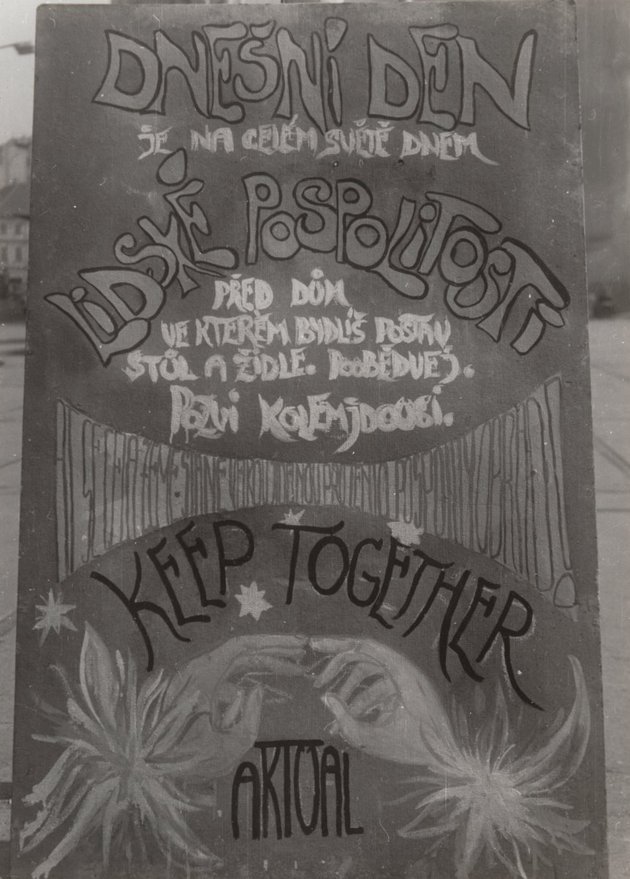 DNEŠNÍ DEN
JE NA CELÉM SVĚTĚ DNEM
LIDSKÉ POSPOLITOSTI
PŘED DŮM
VE KTERÉM BYDLÍŠ POSTAV
STŮL A ŽIDLE. POOBĚDVEJ.
POZVI KOLEMJDOUCÍ.
KEEP TOGETHER
AKTUAL